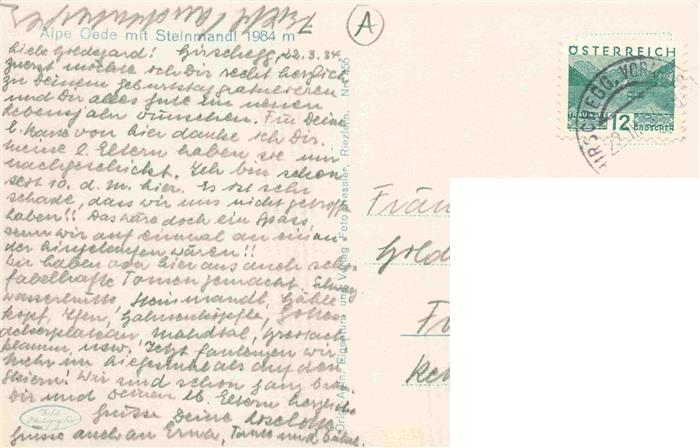 Alpe Oede mit Steinmandl 1984 m
A
Liebe Goldegard! Hirschegg, 22.3.34
zuerst möchte ich Dir recht herzlich
zu Deinem Geburtstag gratulieren
und Dir alles Gute im neuen
Lebensjahr wünschen. Für Deine
l. Karte von hier danke ich Dir.
meine l. Eltern haben sie mir
nachgeschickt. Ich bin schon
seit 10. d. M. hier. Es ist sehr
schade, dass wir uns nicht getroffen
haben!! Das wäre doch ein Spass
wenn wir auf einmal an einan
der hingefangen wären!!
Wir haben von hier aus auch schon
fabelhafte Touren gemacht. Schwarz
wasserhütte, Steinmandl, Hähle
kopf, Ifen, Hahnenköpfle, Gottes
ackerplateau, Mahdtal, Breitach
klamm, usw. Jetzt faulenzen wir
mehr im Liegestuhl als auf den
Skiern! Wir sind schon ganz braun
Dir und Deinen lb. Eltern herzliche
Grüsse Deine Loselotte
Grüsse auch an Erna, Tante und
Orig. Aufn. Eigentum und Verlag Foto Kessler, Riezlern. Nr. 455
ÖSTERREICH
TRAUNSEE
12 GROSCHEN
HIRSCHEGG, VORARL
Fräu
Gold
Fo
Ke
Echte
Photographie